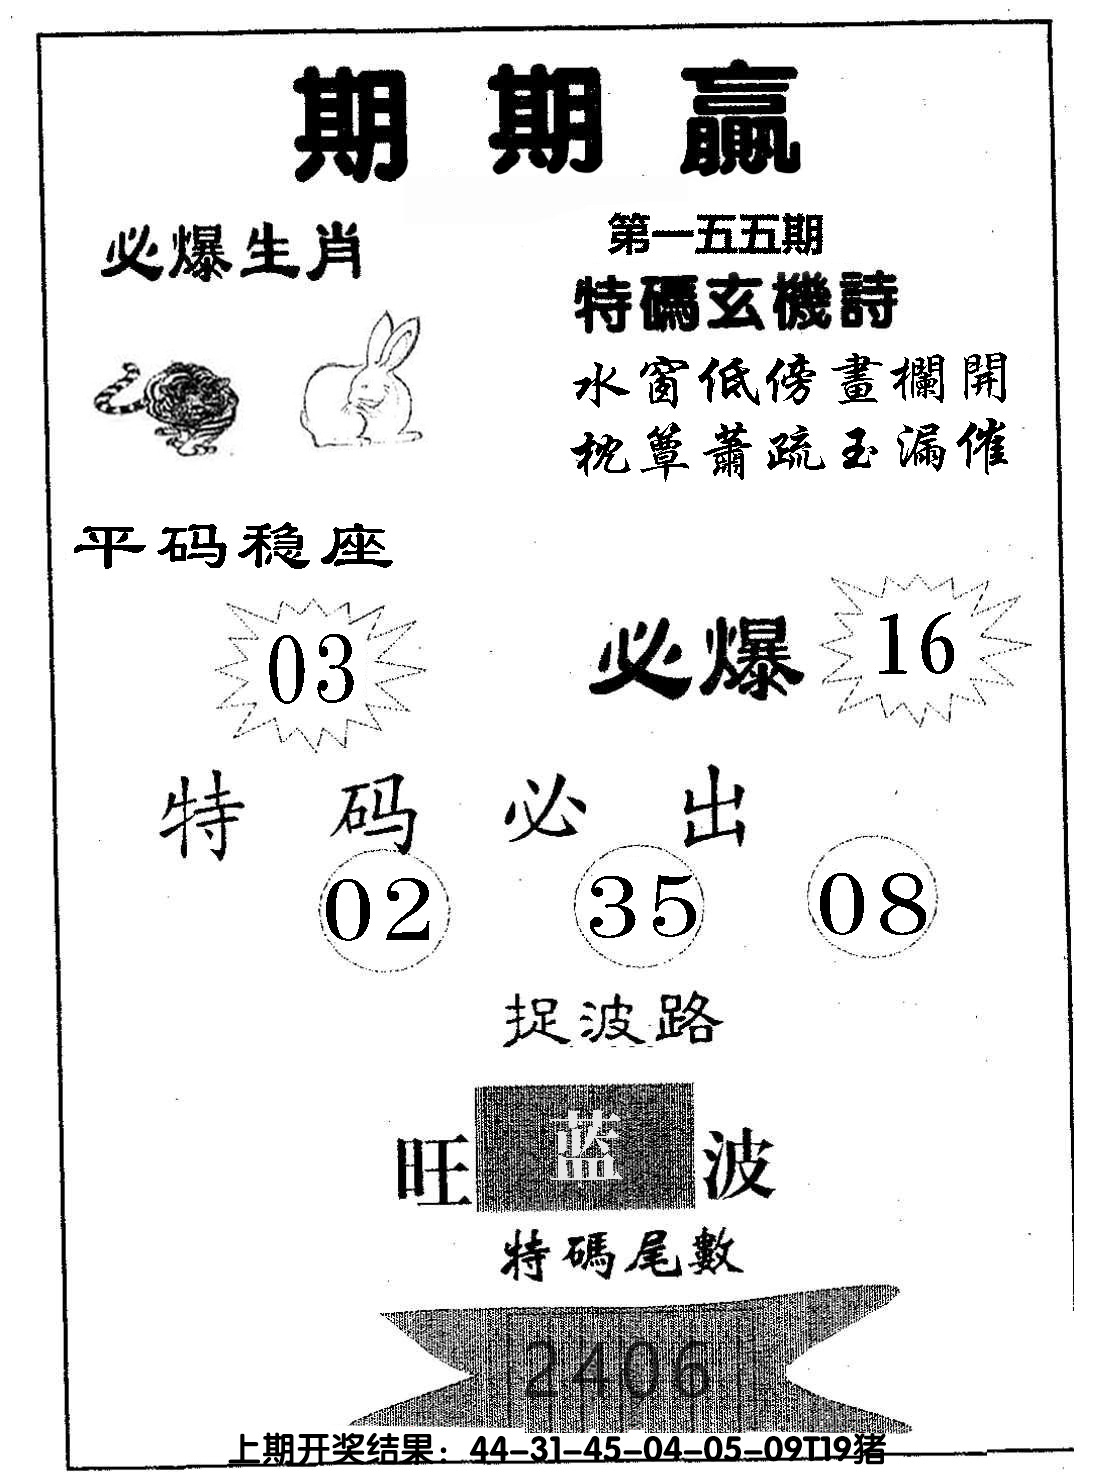 期期赢
必爆生肖
第一五五期
特碼玄機詩
水窗低傍畫欄開
枕簟蕭疏玉漏催
平码稳座
03
必爆 16
特码必出
02 35 08
捉波路
旺 蓝 波
特碼尾數
2406
上期开奖结果：44-31-45-04-05-09T19猪